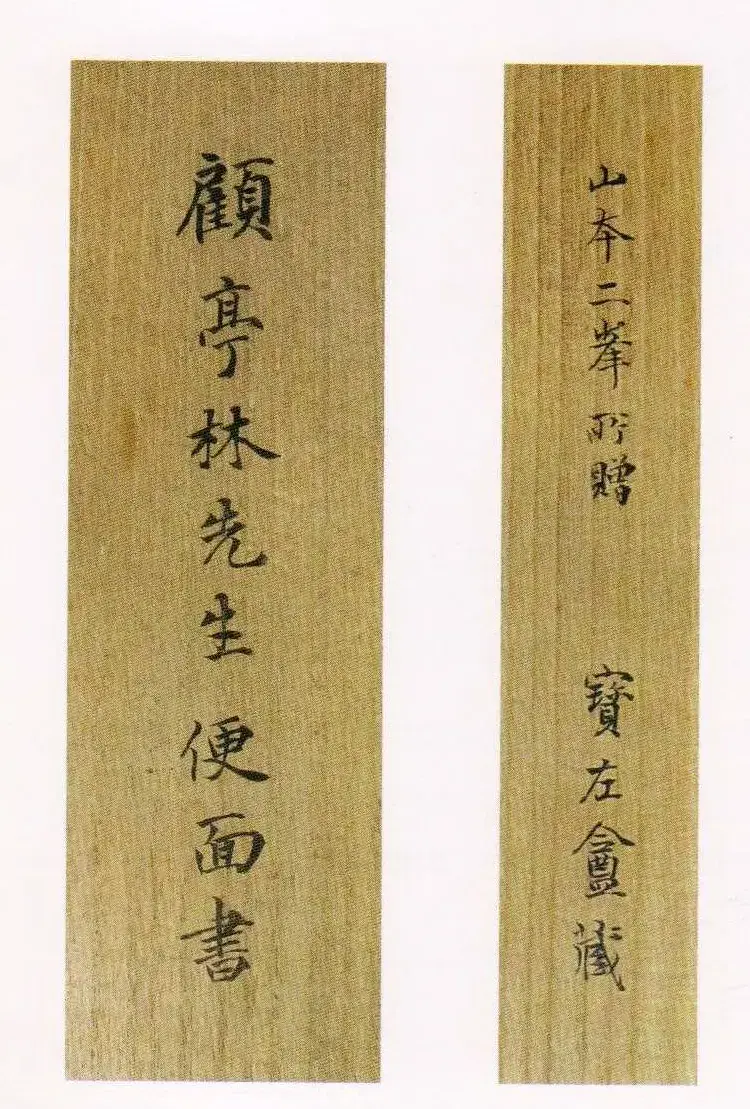 顧亭林先生便面書
山本二峯所贈 寶左盦藏